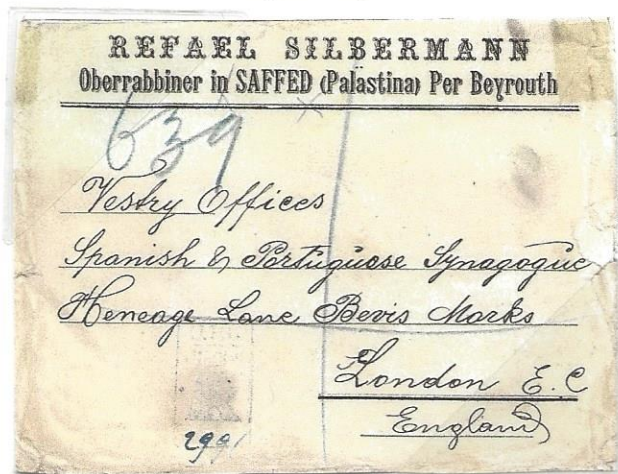 REFAEL SILBERMANN
Oberrabbiner in SAFFED (Palastina) Per Beyrouth
639
Vestry Offices
Spanish & Portuguese Synagogue
Heneage Lane Bevis Marks
London E.C
England